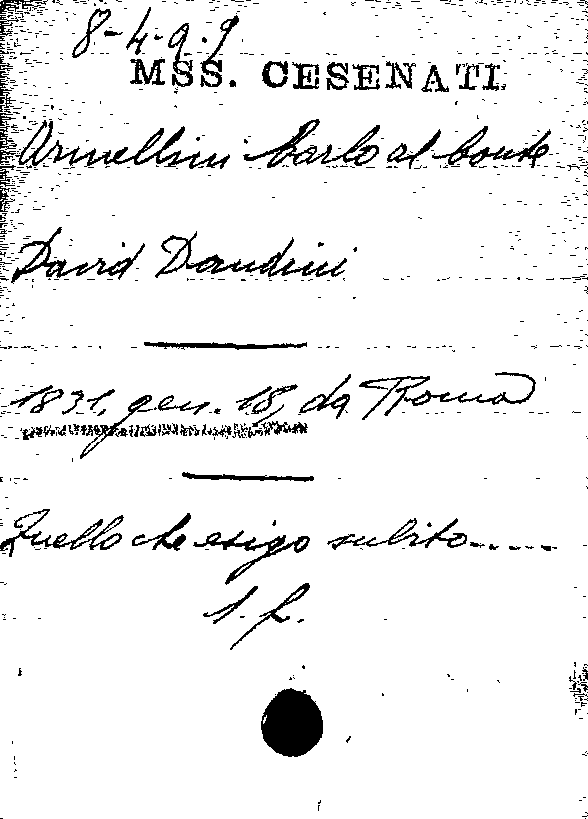 8-4-9.9
MSS. CESENATI
Armellini Carlo al conte
David Dandini
1831, gen. 18, da Roma
Quello che esigo subito.....
1 f.